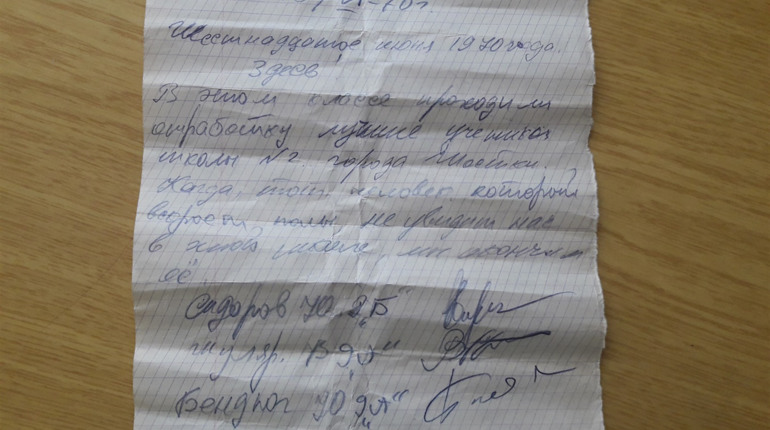 Шестнадцатое июня 1970 года.
Здесь
В этом классе проходили
отработку лучшие ученики
школы №2 города Шостки.
Когда, тот человек который
вскрости полы не увидит нас
в школе мы окончим
её.
Сидоров Ю. "Б"
В 9 "А"
Бендюг Ю 9 "А"